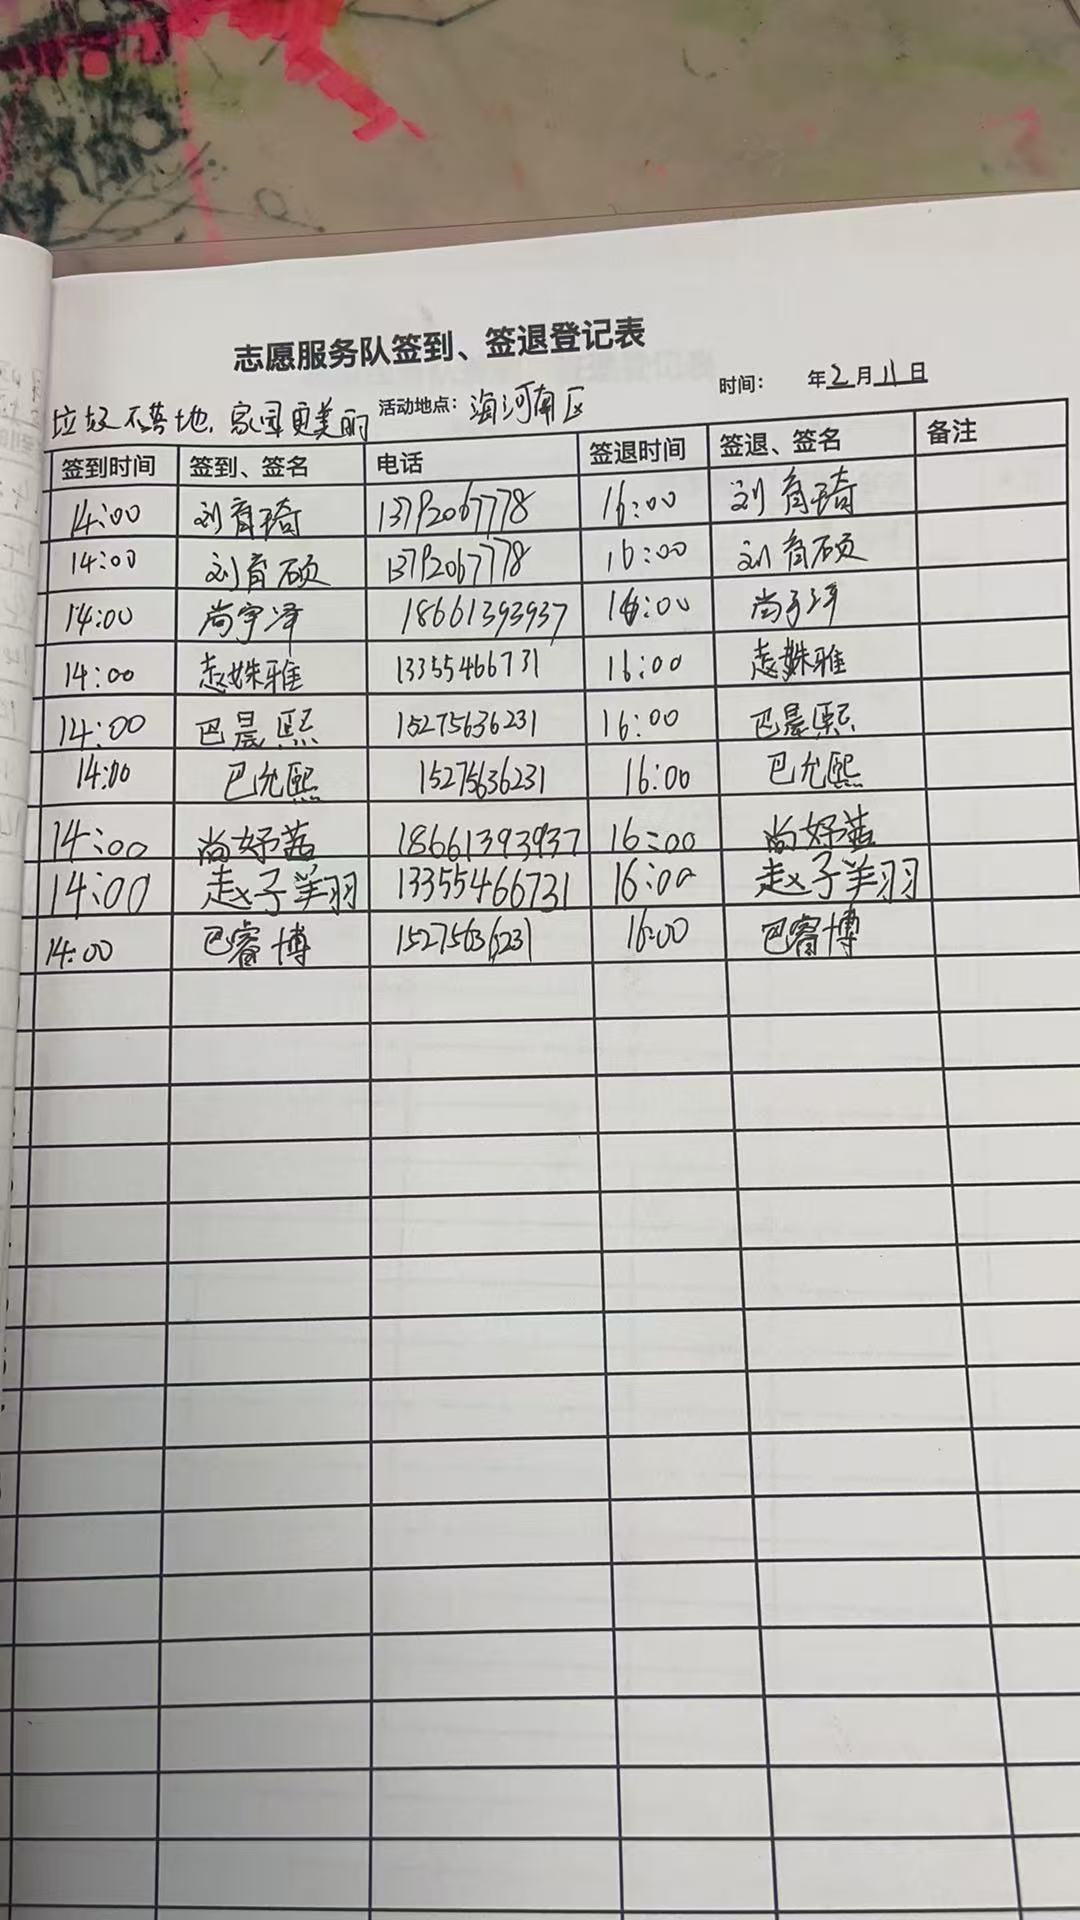 志愿服务队签到、签退登记表
时间： 年2月11日
垃圾不落地,家园更美丽 活动地点：海河南区
签到时间 签到、签名 电话 签退时间 签退、签名 备注
14:00 刘育琦 13792067778 16:00 刘育琦
14:00 刘育硕 13792067778 16:00 刘育硕
14:00 尚宇泽 18661393937 16:00 尚子泽
14:00 赵姝雅 13355466731 16:00 赵姝雅
14:00 巴晨熙 15275636231 16:00 巴晨熙
14:00 巴允熙 15275636231 16:00 巴允熙
14:00 尚妤茜 18661393937 16:00 尚妤茜
14:00 赵子羊羽 13355466731 16:00 赵子羊羽
14:00 巴睿博 15275636231 16:00 巴睿博